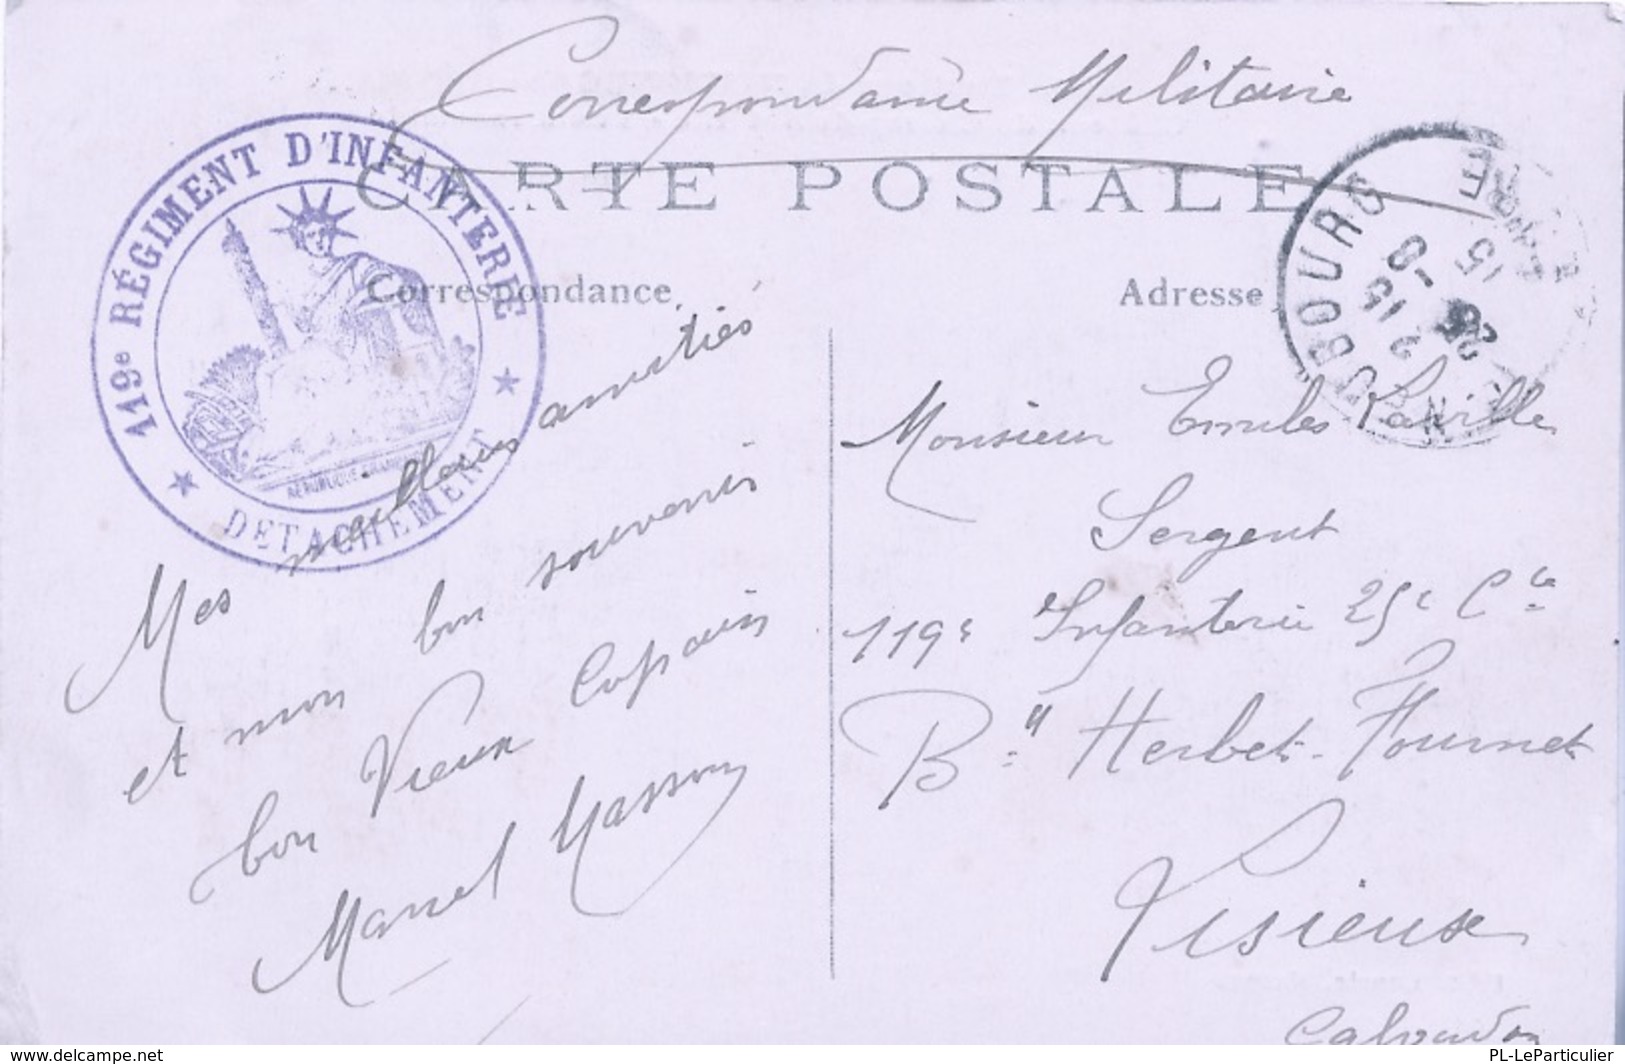 Correspondance Militaire
CARTE POSTALE
119e RÉGIMENT D'INFANTERIE
★ DETACHEMENT ★
RÉPUBLIQUE FRANÇAISE
Correspondance
Adresse
Mes meilleures amitiés
et mon bon souvenir
bon Vieux Copain
Marcel Masson
BOURG
2 15
-8
15
Monsieur Emiles
Sergent
119e Infanterie 25e Cie
Bd Herbet-Fournet
Lisieux
Calvados
www.delcampe.net
PL-LeParticulier